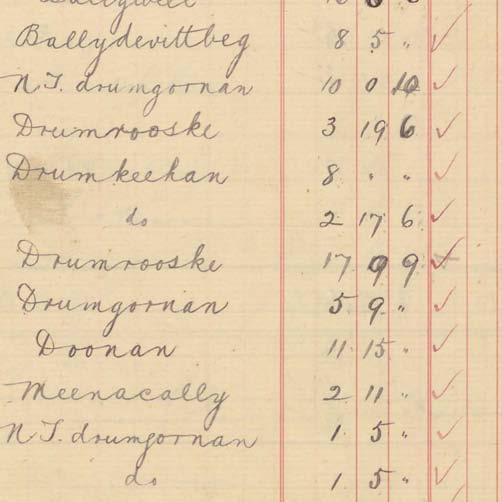 Ballydevittbeg 8 5 "
N.T. drumgornan 10 0 10
Drumrooske 3 19 6
Drumkeehan 8 " "
do 2 17 6
Drumrooske 17 9 9
Drumgornan 5 9 "
Doonan 11 15 "
Meenacally 2 11 "
N.T. drumgornan 1 5 "
do 1 5 "